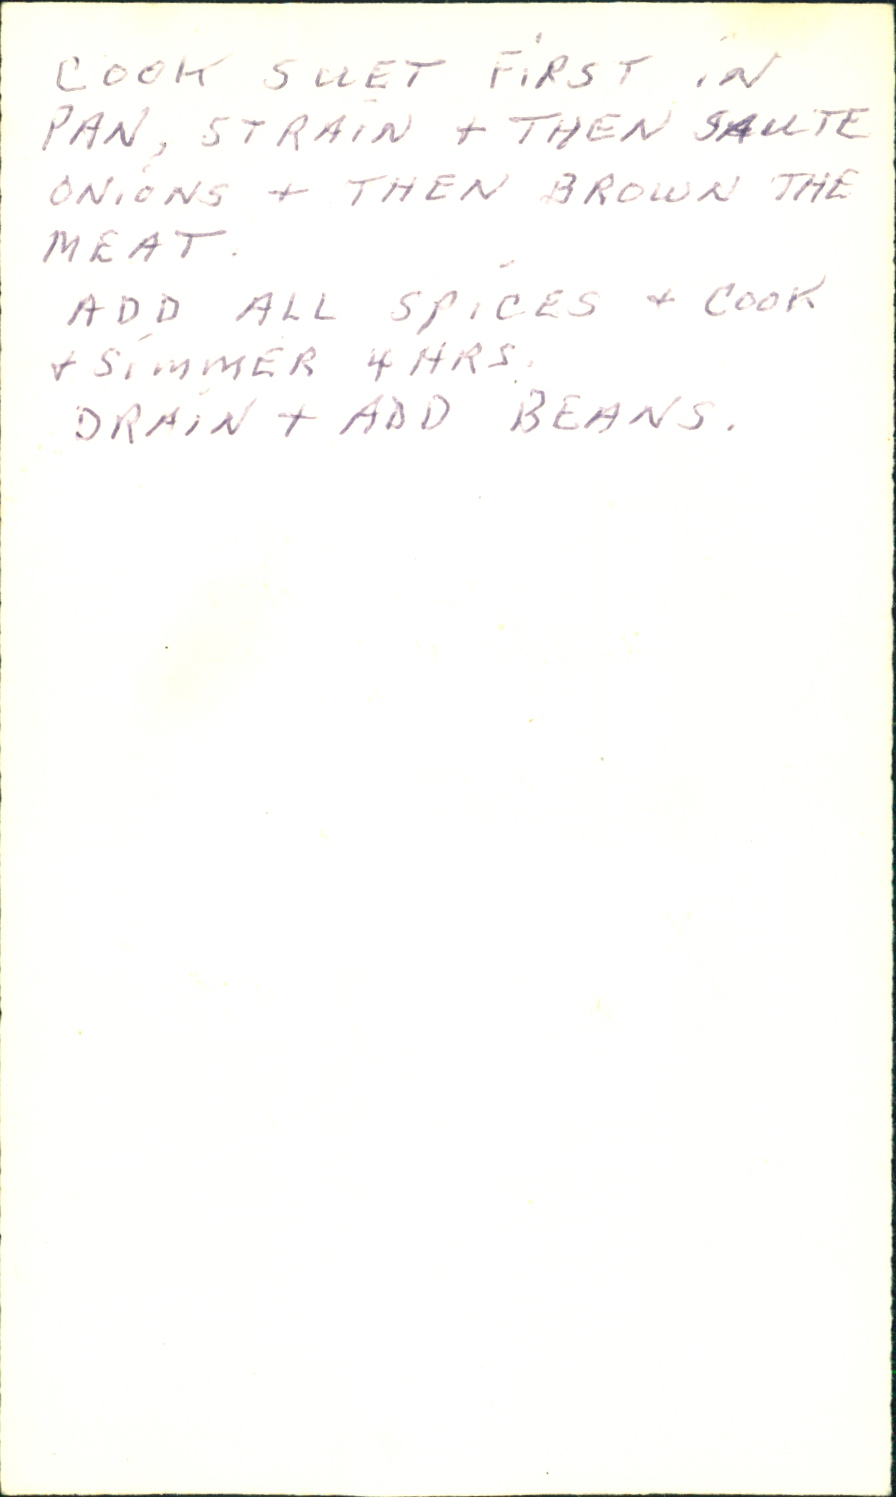 COOK SUET FiRST iN
PAN, STRAiN + THEN SAUTE
ONiONS + THEN BROWN THE
MEAT.
ADD ALL SPiCES + COOK
+ SiMMER 4 HRS.
DRAiN + ADD BEANS.